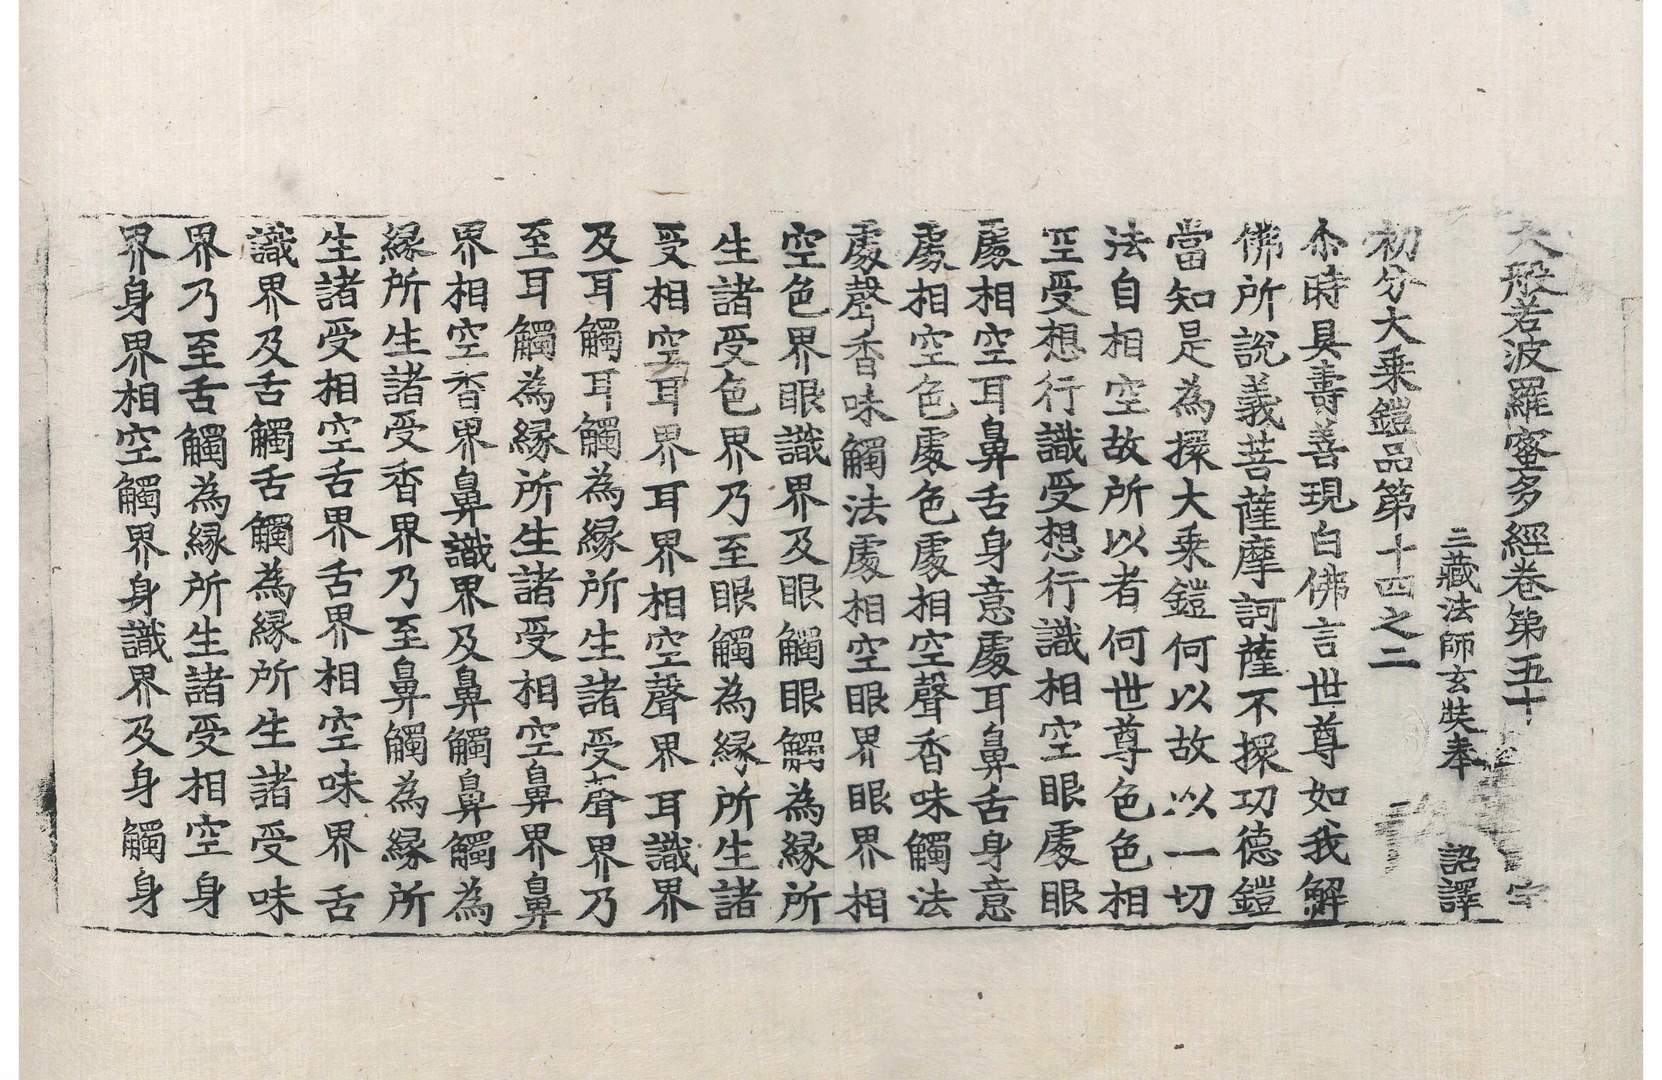 大般若波羅蜜多經卷第五十
三藏法師玄奘奉 詔譯
初分大乗鎧品第十四之二
尒時具壽善現白佛言世尊如我解
佛所說義菩薩摩訶薩不擐功德鎧
當知是為擐大乗鎧何以故以一切
法自相空故所以者何世尊色色相
空受想行識受想行識相空眼處眼
處相空耳鼻舌身意處耳鼻舌身意
處相空色處色處相空聲香味觸法
處聲香味觸法處相空眼界眼界相
空色界眼識界及眼觸眼觸為縁所
生諸受色界乃至眼觸為縁所生諸
受相空耳界耳界相空聲界耳識界
及耳觸耳觸為縁所生諸受聲界乃
至耳觸為縁所生諸受相空鼻界鼻
界相空香界鼻識界及鼻觸鼻觸為
縁所生諸受香界乃至鼻觸為縁所
生諸受相空舌界舌界相空味界舌
識界及舌觸舌觸為縁所生諸受味
界乃至舌觸為縁所生諸受相空身
界身界相空觸界身識界及身觸身